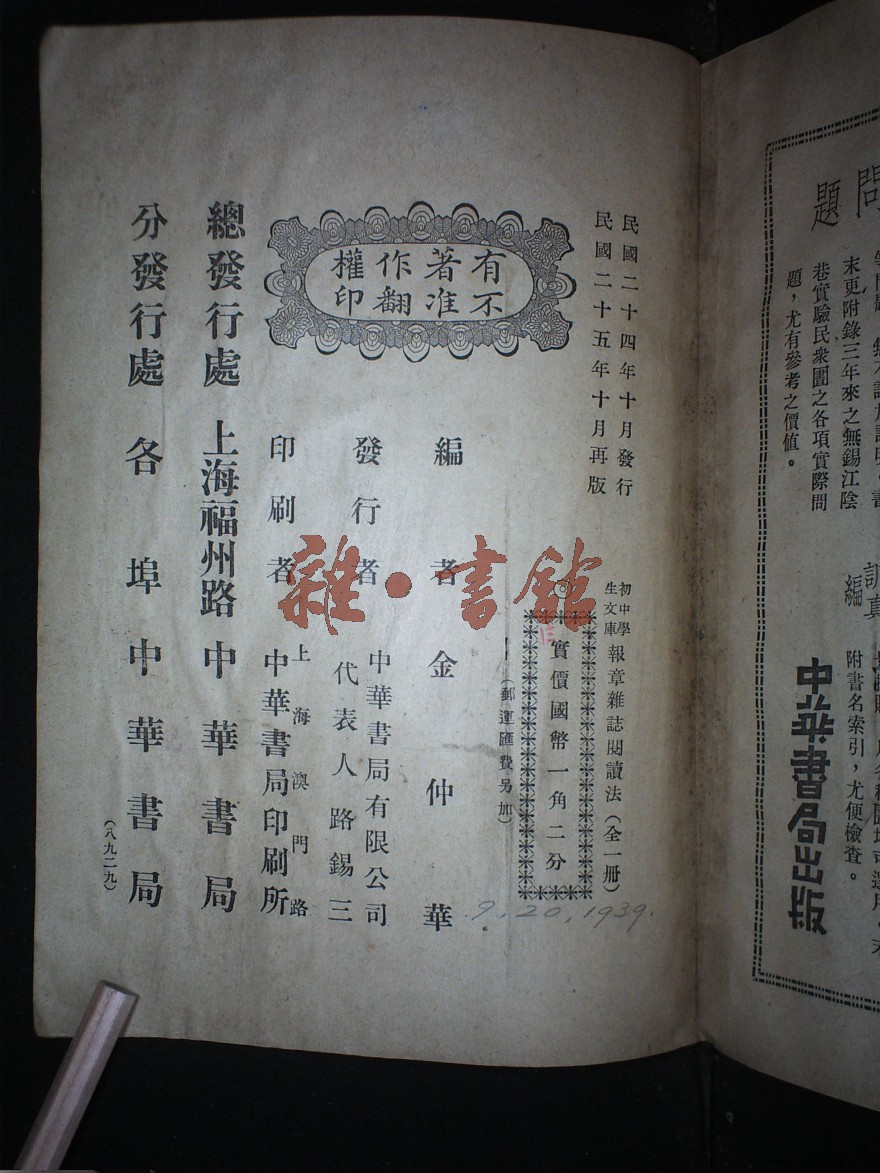 問
題
末更附錄三年來之無錫江陰
巷實驗民衆圖之各項實際問
題，尤有參考之價值。
編
附書名索引，尤便檢查。
中華書局出版
民國二十四年十月發行
民國二十五年十月再版
初中學
生文庫
報章雜誌閱讀法（全一册）
實價國幣一角二分
（郵運匯費另加）
9.20,1939.
有著作權
不准翻印
編者 金仲華
發行者 中華書局有限公司
代表人路錫三
印刷者 上海澳門路
中華書局印刷所
總發行處 上海福州路 中華書局
分發行處 各埠中華書局
（八九二九）
雜·書館